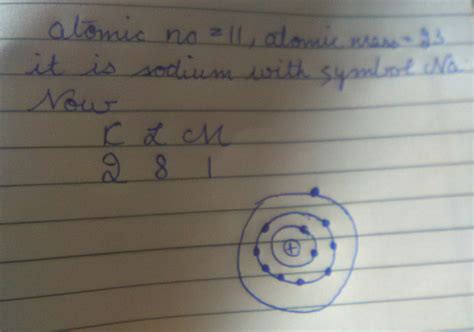 atomic no = 11, atomic mass = 23
it is sodium with symbol Na.
Now
K L M
2 8 1
+